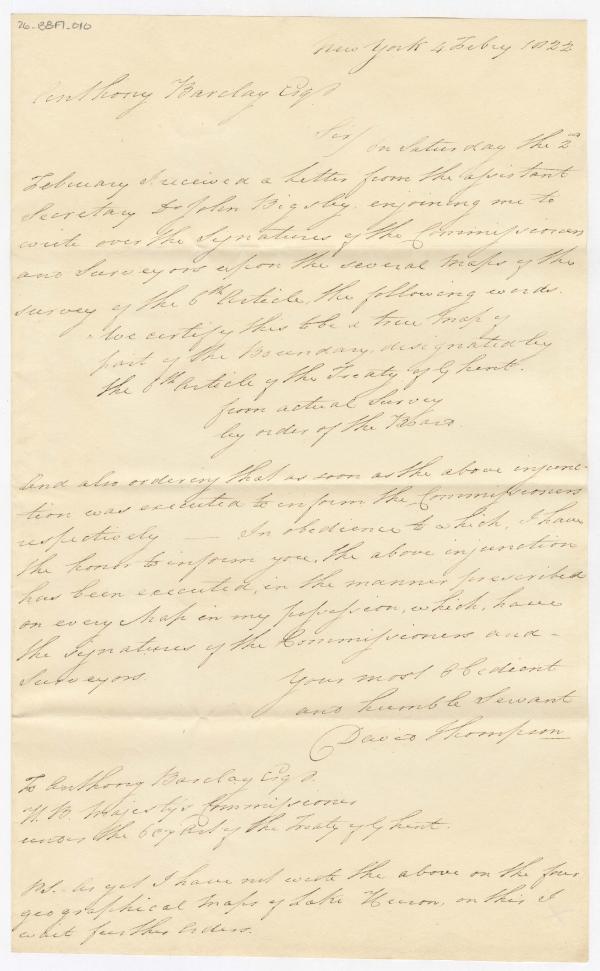 26-BBF1-010
New York 4 Febry 1822
Anthony Barclay Esqr
Sir/ On Saturday the 2nd
February I received a Letter from the assistant
Secretary Dr John Bigsby. enjoining me to
write over the Signatures of the Commissioners
and Surveyors upon the several Maps of the
survey of the 6th Article, the following words.
We certify this to be a true Map of
part of the Boundary, designated by
the 6th Article of the Treaty of Ghent.
from actual Survey
by order of the Board.
And also ordering that as soon as the above injunc-
tion was executed to inform the Commissioners
respectively — In obedience to which, I have
the honor to inform you, the above injunction
has been executed, in the manner prescribed
on every Map in my possession, which, have
the signatures of the Commissioners and -
Surveyors.
Your most Obedient
and humble Servant
David Thompson
To Anthony Barclay Esqr.
H. B. Majesty's Commissioner
under the 6 & 7 Art of the Treaty of Ghent.
P.S. As yet I have not wrote the above on the four
geographical Maps of Lake Huron, on this I
wait further Orders.